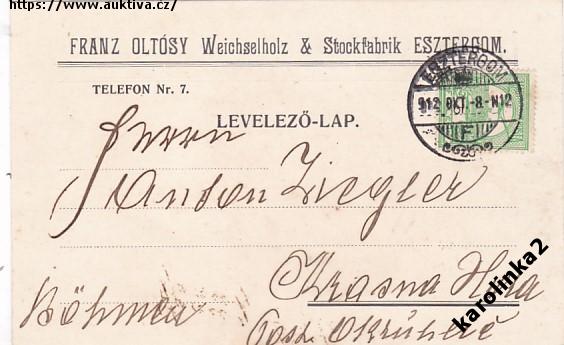 https://www.auktiva.cz/
FRANZ OLTÓSY Weichselholz & Stockfabrik ESZTERGOM.
TELEFON Nr. 7.
LEVELEZŐ-LAP.
ESZTERGOM
912 OKT.-8.-N12
F
Herrn
Anton Ziegler
Krasna Hora
Böhmen
Post
karolinka2